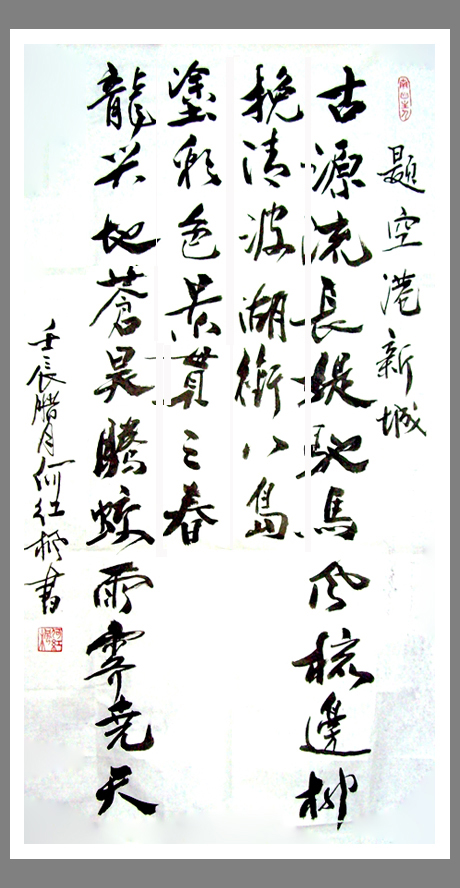 题空港新城
古源流長堤馳馬风梳邊柳
挽清波湖銜八島
塗彩色景貫三春
龍兴地蒼昊騰蛟雨霽堯天
壬辰腊月何红書